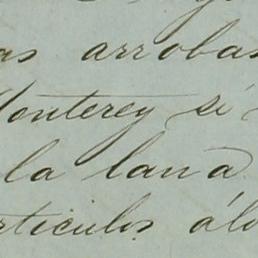 as arrobas
Monterey si
la lana
rticulos ál